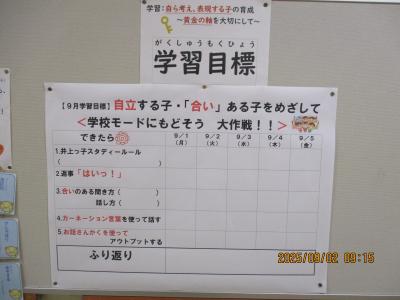 学習：自ら考え、表現する子の育成
～黄金の軸を大切にして～
がくしゅうもくひょう
学習目標
【９月学習目標】自立する子・「合い」ある子をめざして
＜学校モードにもどそう　大作戦！！＞
できたら
９／１（月）
９／２（火）
９／３（水）
９／４（木）
９／５（金）
1.井上っ子スタディールール
（　　　　　　　　　　）
2.返事「はいっ！」
3.合いのある聞き方（　　　）
話し方（　　　）
4.カーネーション言葉を使って話す
5.お話さんかくを使って
アウトプットする
ふり返り
2025/09/02 09:15